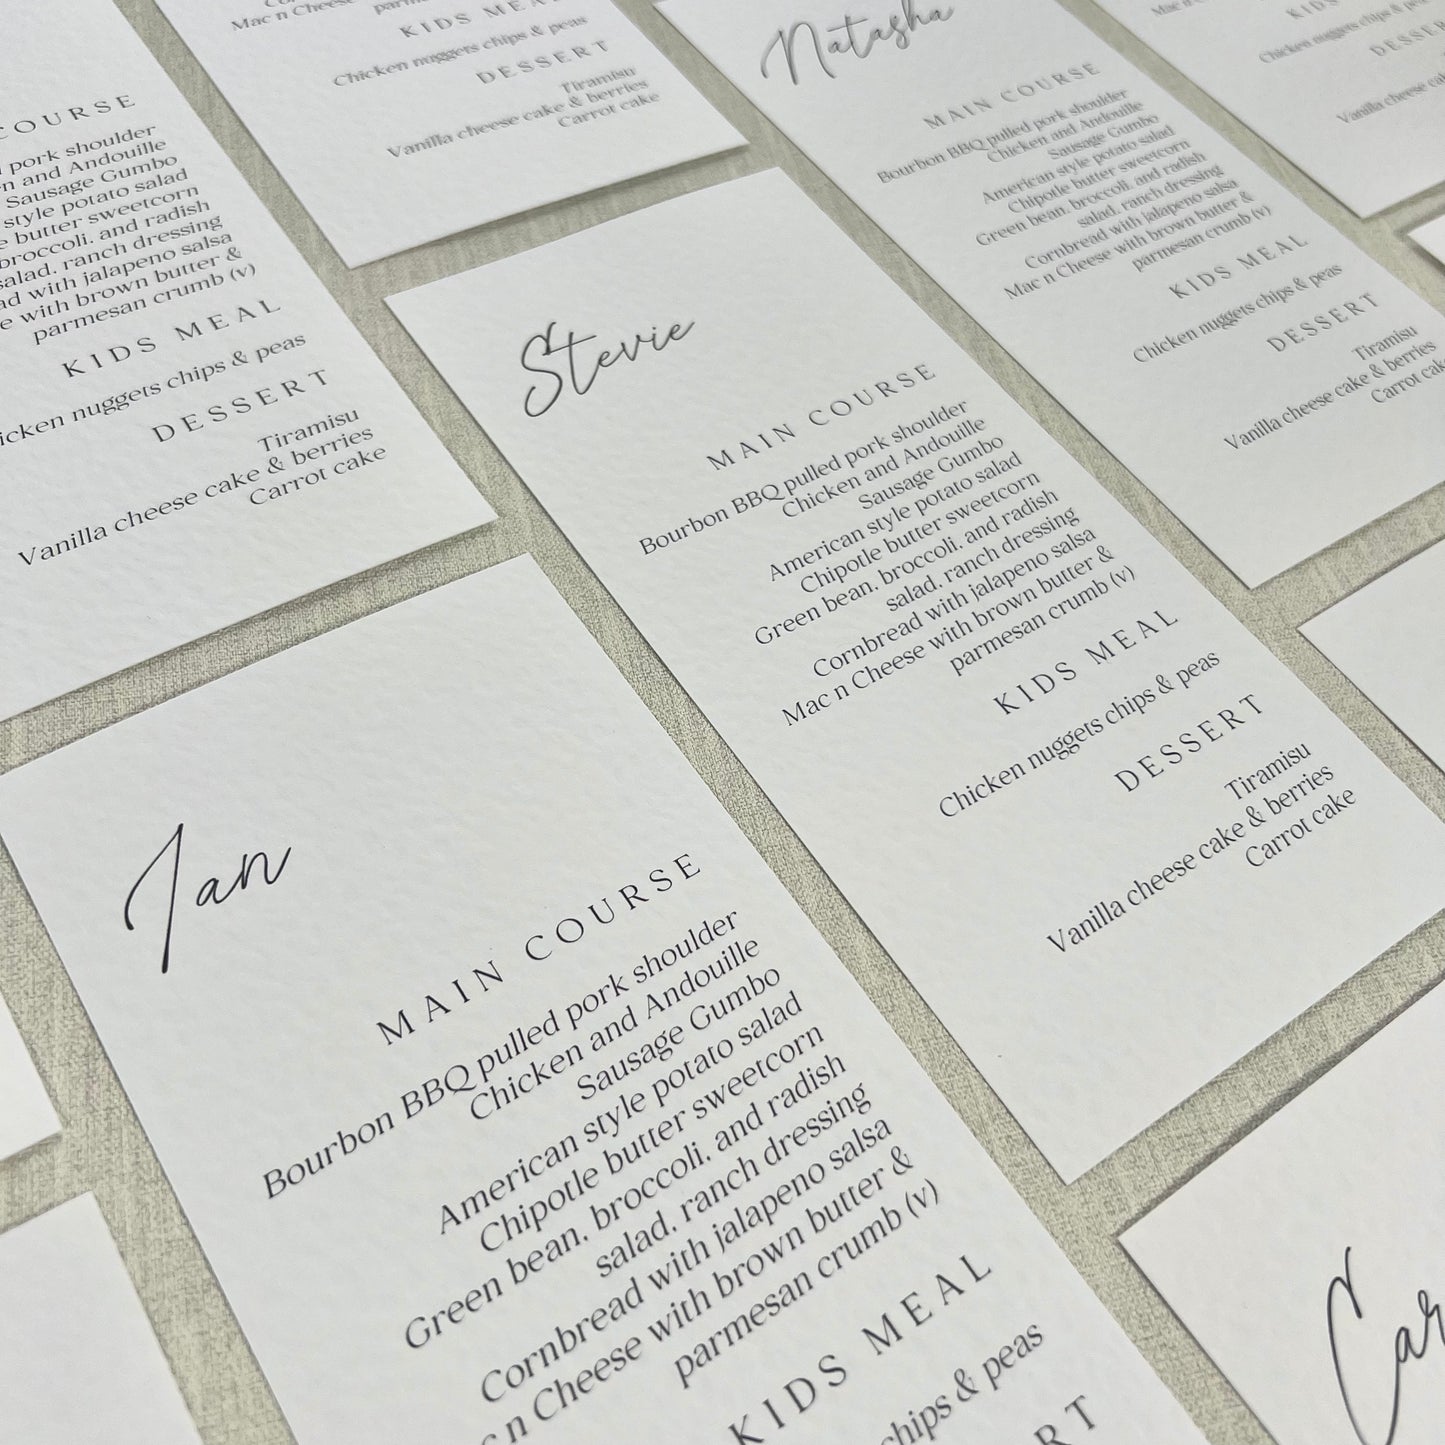 Mac n Cheese
KIDS MEAL
Chicken nuggets chips & peas
DESSERT
Tiramisu
Vanilla cheese cake & berries
Carrot cake
Natasha
MAIN COURSE
Bourbon BBQ pulled pork shoulder
Chicken and Andouille
Sausage Gumbo
American style potato salad
Chipotle butter sweetcorn
Green bean, broccoli, and radish
salad, ranch dressing
Cornbread with jalapeno salsa
Mac n Cheese with brown butter &
parmesan crumb (v)
KIDS MEAL
Chicken nuggets chips & peas
DESSERT
Tiramisu
Vanilla cheese cake & berries
Carrot cake
KIDS MEAL
Chicken nuggets chips & peas
DESSERT
Vanilla cheese
COURSE
pork shoulder
and Andouille
Sausage Gumbo
style potato salad
butter sweetcorn
broccoli, and radish
salad, ranch dressing
with jalapeno salsa
with brown butter &
parmesan crumb (v)
KIDS MEAL
nuggets chips & peas
DESSERT
Tiramisu
Vanilla cheese cake & berries
Carrot cake
Stevie
MAIN COURSE
Bourbon BBQ pulled pork shoulder
Chicken and Andouille
Sausage Gumbo
American style potato salad
Chipotle butter sweetcorn
Green bean, broccoli, and radish
salad, ranch dressing
Cornbread with jalapeno salsa
Mac n Cheese with brown butter &
parmesan crumb (v)
KIDS MEAL
Chicken nuggets chips & peas
DESSERT
Tiramisu
Vanilla cheese cake & berries
Carrot cake
Ian
MAIN COURSE
Bourbon BBQ pulled pork shoulder
Chicken and Andouille
Sausage Gumbo
American style potato salad
Chipotle butter sweetcorn
Green bean, broccoli, and radish
salad, ranch dressing
Cornbread with jalapeno salsa
n Cheese with brown butter &
parmesan crumb (v)
KIDS MEAL
chips & peas
Car